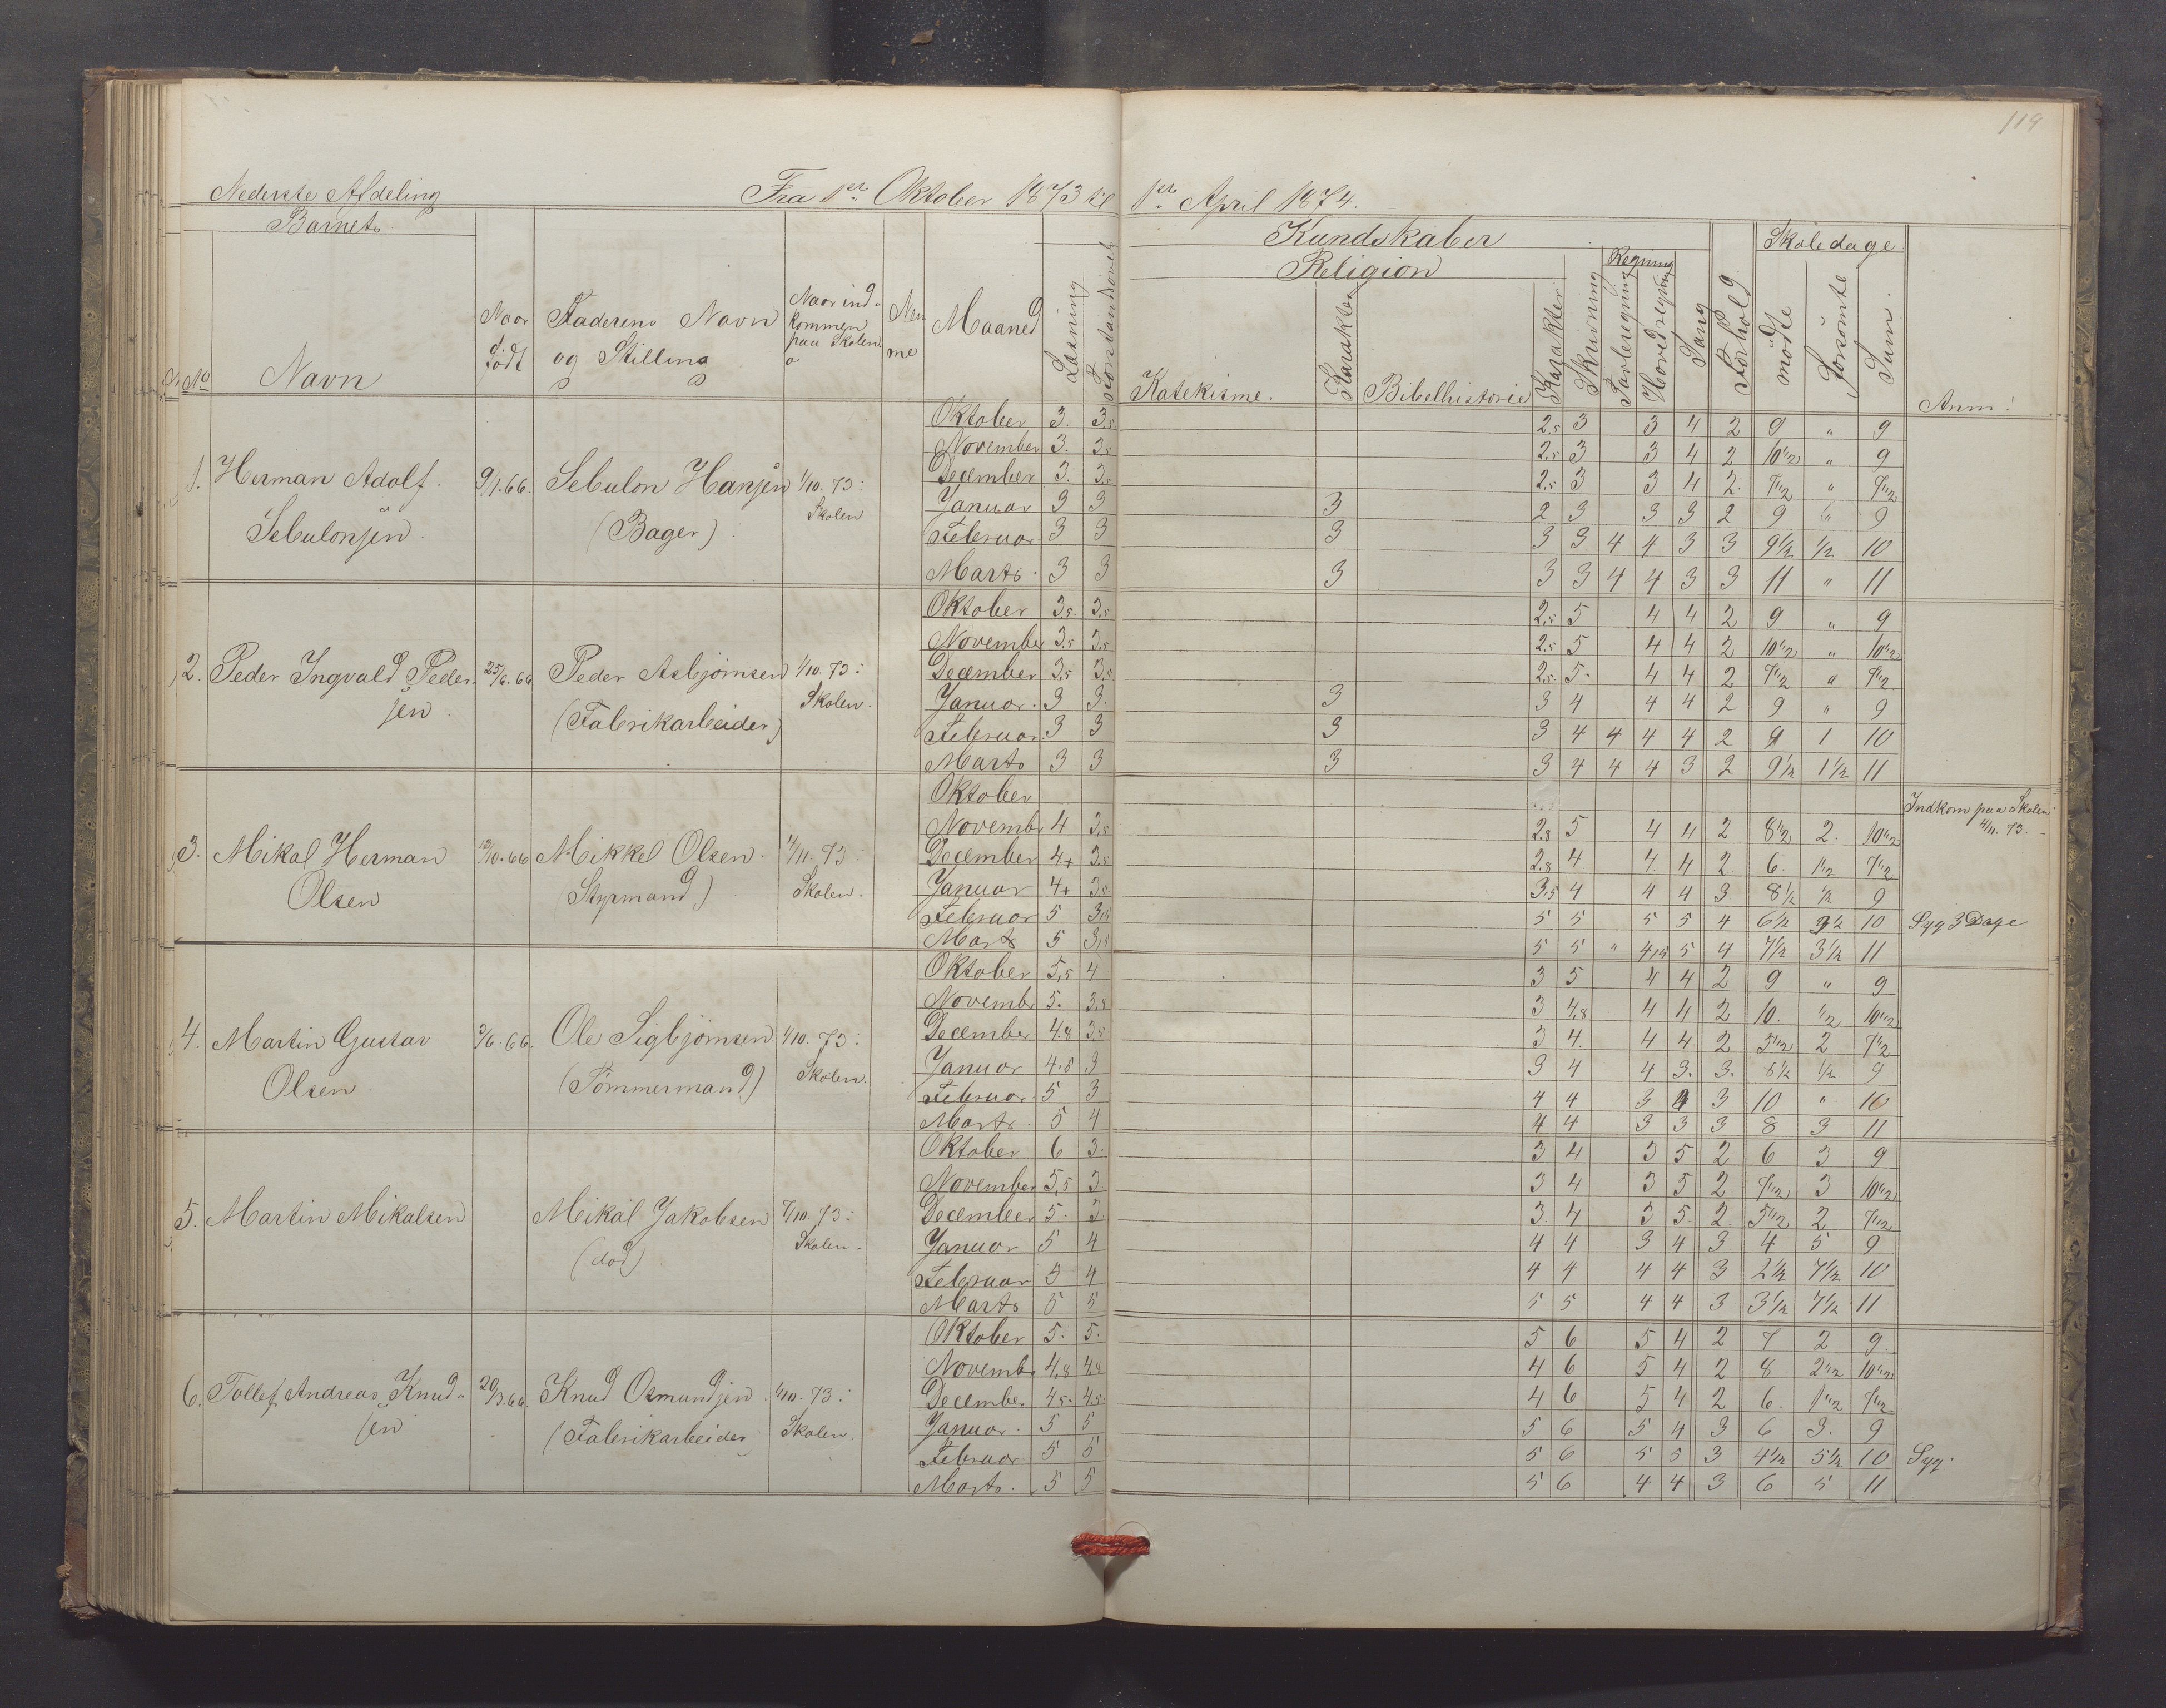 119
Nederste Afdeling Fra 1ste Oktober 1873 til 1ste April 1874.
Barnets Kundskaber Skoledage
Religion Regning
No Navn Naar født Faderens Navn og Stilling Naar indkommen paa Skolen Maaned Læsning Forstandsøvels Katekisme. Karakter Bibelhistorie Karakter Skrivning Tavleregning Hovedregning Sang Forhold mødte forsømte Sum. Anm:
Oktober 3. 3,5 2,5 3 3 4 2 9 " 9
November 3. 3,5 2,5 3 3 4 2 10 1/2 " 9
1. Herman Adolf 9/1.66. Sebulon Hansen 1/10.73: December 3. 3,5 2,5 3 3 4 2. 7 1/2 " 7 1/2
Skolen Januar 3 3 3 2 3 3 3 2 9 " 9
Sebulonsen. (Bager). Februar 3 3 3 3 3 4 4 3 3 9 1/2 1/2 10
Marts. 3 3 3 3 3 4 4 3 3 11 " 11
Oktober 3,5. 3,5 2,5 5 4 4 2 9 " 9
November 3,5 3,5 2,5 5 4 4 2 10 1/2 " 10 1/2
2. Peder Ingvald Peder- 25/6.66 Peder Asbjørnsen 1/10.73: December 3,5 3,5 2,5. 5. 4 4 2 7 1/2 " 7 1/2
sen. Skolen. Januar. 3 3. 3 3 4 4 4 2 9 " 9
(Fabrikarbeider) Februar. 3 3 3 3 4 4 4 4 2 9 1 10
Marts 3 3 3 3 4 4 4 3 2 9 1/2 1 1/2 11
Oktober Indkom paa Skolen
Novemb. 4 3,5 2,8 5 4 4 2 8 1/2 2. 10 1/2 4/11.73.
3. Mikal Herman /10.66 Mikkel Olsen. 4/11.73: December 4+ 3,5 2,8 4. 4. 4 2. 6. 1 1/2 7 1/2
Olsen (Styrmand). Skolen. Januar 4+ 3,5 3,5 4 4 4 3 8 1/2 1/2 9
Februar 5 3,5 5 5 5 5 4 6 1/2 3 1/2 10 Syg 3 Dage
Marts 5 3,5 5 5 " 4,5 5 4 7 1/2 3 1/2 11
Oktober 5,5 4 3 5 4 4 2 9 " 9
Novemb. 5. 3,8 3 4,8 4 4 2 10. 1/2 10 1/2
4. Martin Gustav /6.66. Ole Sigbjørnsen 1/10.73: December 4.8 3,5 3 4. 4 4 2 5 1/2 2 7 1/2
Olsen. (Tømmermand) Skolen. Januar 4.8 3 3 4 4 3. 3. 8 1/2 1/2 9
Februar. 5 3 4 4 3 4 3 10 " 10
Marts. 5 4 4 4 3 3 3 8 3 11
Oktober 6 3. 3 4 3 5 2 6 3 9
November 5,5 3. 3 4 3 5 2 7 1/2 3 10 1/2
5. Martin Mikalsen Mikal Jakobsen /10.73: December 5. 3. 3. 4 3 5. 2. 5 1/2 2 7 1/2
(død). Skolen. Januar 5 4 4 4 3 4 3 4 5 9
Februar 5 4 4 4 4 4 3 2 1/2 7 1/2 10
Marts 5 5 5 5 4 4 3 3 1/2 7 1/2 11
Oktober 5. 5. 5 6 5 4 2 7 2 9
Novemb. 4,8 4,8 4 6 5 4 2 8 2 1/2 10 1/2
6. Tollef Andreas Knud- 20/3.66. Knud Osmundsen. 1/10.73: December 4,5. 4,5. 4 6 5 4 2 6. 1 1/2 7 1/2
sen (Fabrikarbeider Skolen. Januar. 5 5 5 6 5 4 3 6 3. 9
Februar 5 5 5 6 5 5 3 4 1/2 5 1/2 10 Syg.
Marts. 5 5 5 6 4 4 3 6 5 11